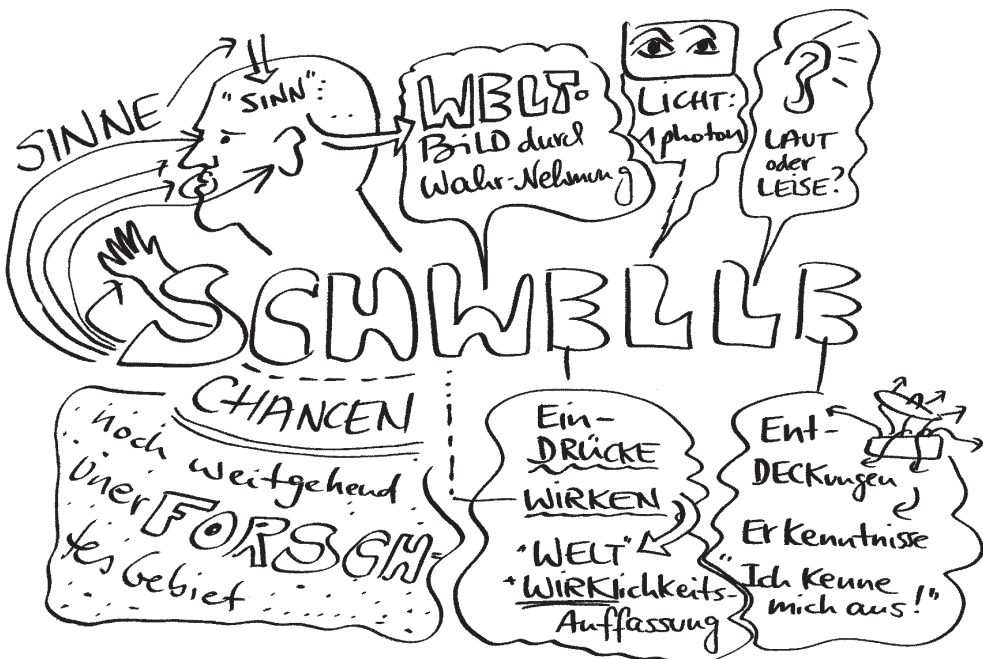 SINNE
"SINN":
WELT-
BiLD durch
Wahr-Nehmung
LiCHT:
1 photon
LAUT
oder
LEiSE?
SCHWELLE
CHANCEN
noch weitgehend
UnerFORSCH-
tes Gebiet
Ein-
DRÜCKE
WIRKEN
"WELT"
+WIRKlichkeits-
Auffassung
Ent-
DECKungen
Erkenntnisse
"Ich kenne
mich aus!"